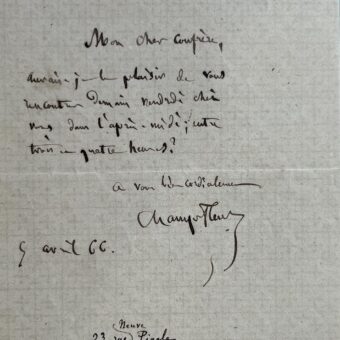 Mon cher confrère,
aurais-je le plaisir de vous
rencontrer demain vendredi chez
vous dans l'après-midi, entre
trois ou quatre heures?
a vous bien cordialement
Champfleury
5 avril 66.
Neuve
23 rue Pigale